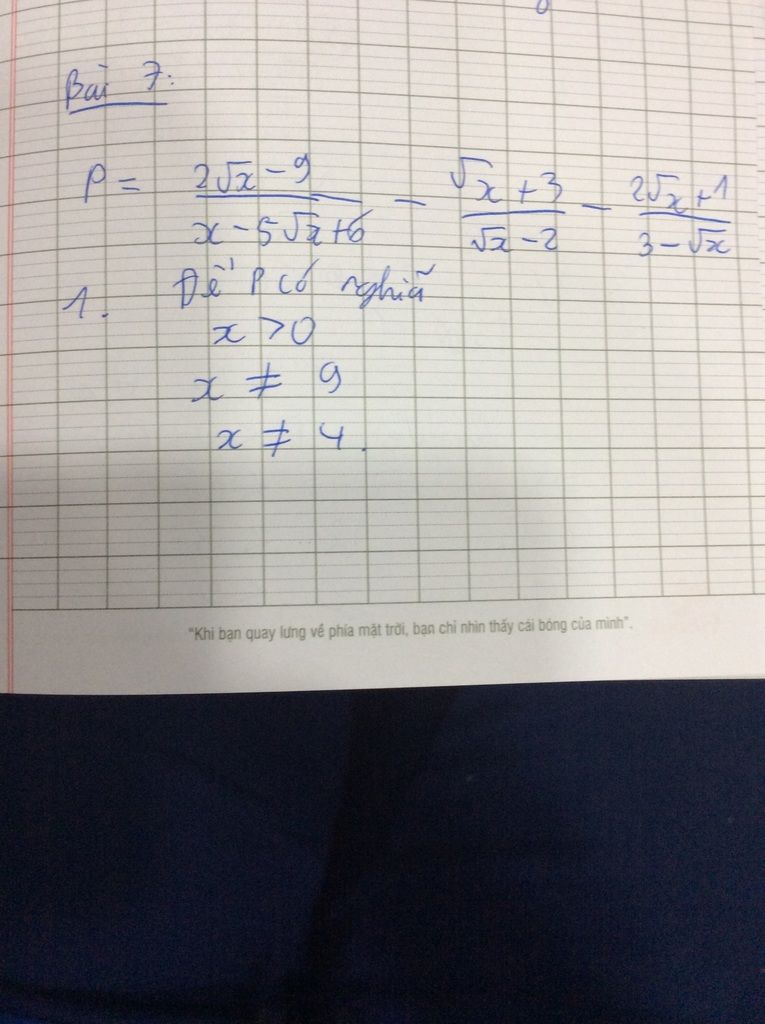 Bài 7:
P = \frac{2\sqrt{x} - 9}{x - 5\sqrt{x} + 6} - \frac{\sqrt{x} + 3}{\sqrt{x} - 2} - \frac{2\sqrt{x} + 1}{3 - \sqrt{x}}
1. Để P có nghĩã
x > 0
x ≠ 9
x ≠ 4.
"Khi bạn quay lưng về phía mặt trời, bạn chỉ nhìn thấy cái bóng của mình".